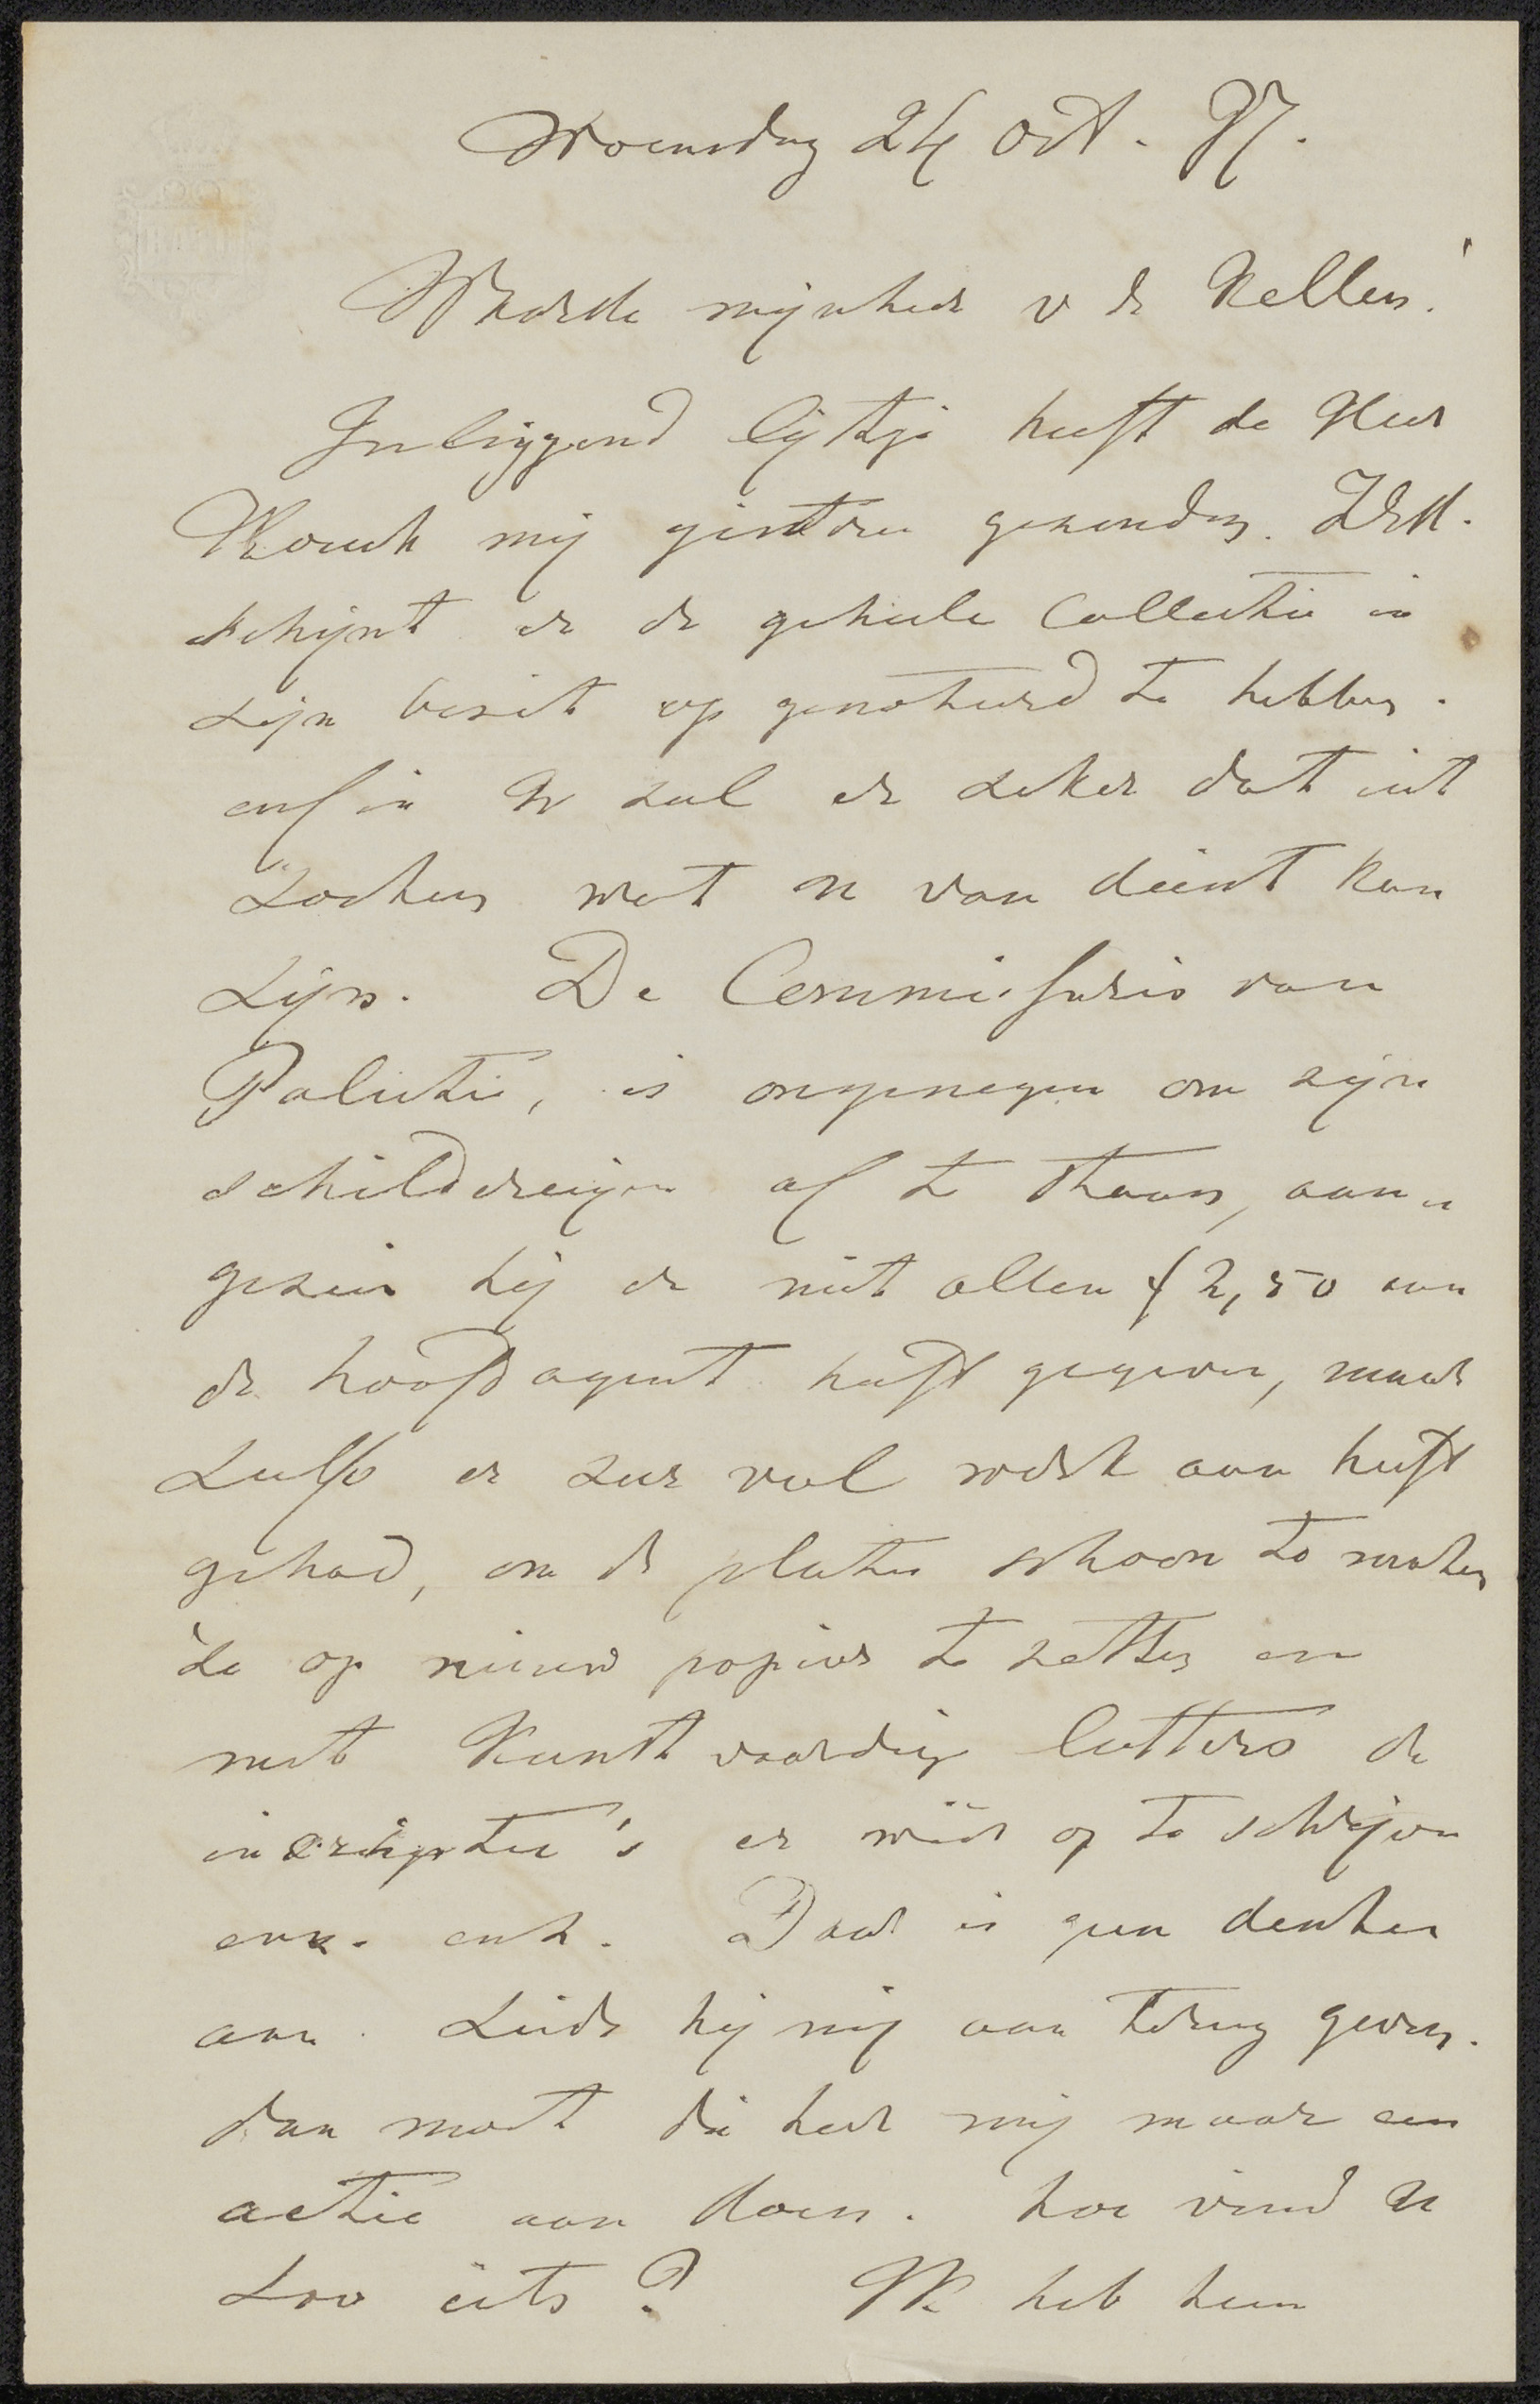 Woensdag 24 Oct. 97.
Waarde mijnheer v de Kellen!
Inliggend lijstje heeft de Heer
mij gisteren gezonden. ZEd.
schijnt er de geheele Collectie in
zijn bezit op genoteerd te hebben.
enfin U zal er zeker dat uit
zoeken wat er van dienst kan
zijn. De Commissaris van
Politie, is ongenegen om zijn
schilderijen af te staan, aan„
gezien hij er niet alleen f 2,50 aan
de hoofdagent heeft gegeven, maar
zelfs er zeer veel werk aan heeft
gehad, om de platen schoon te maken
ze op nieuw papier te zetten en
met kunstvaardige letters de
inscriptie's er weder op te schrijven
enz. enz. Daar is geen denken
aan. Zeide hij mij aan terug geven.
dan moet die heer mij maar een
actie aan doen. hoe vind U
zoo iets? Ik heb hem